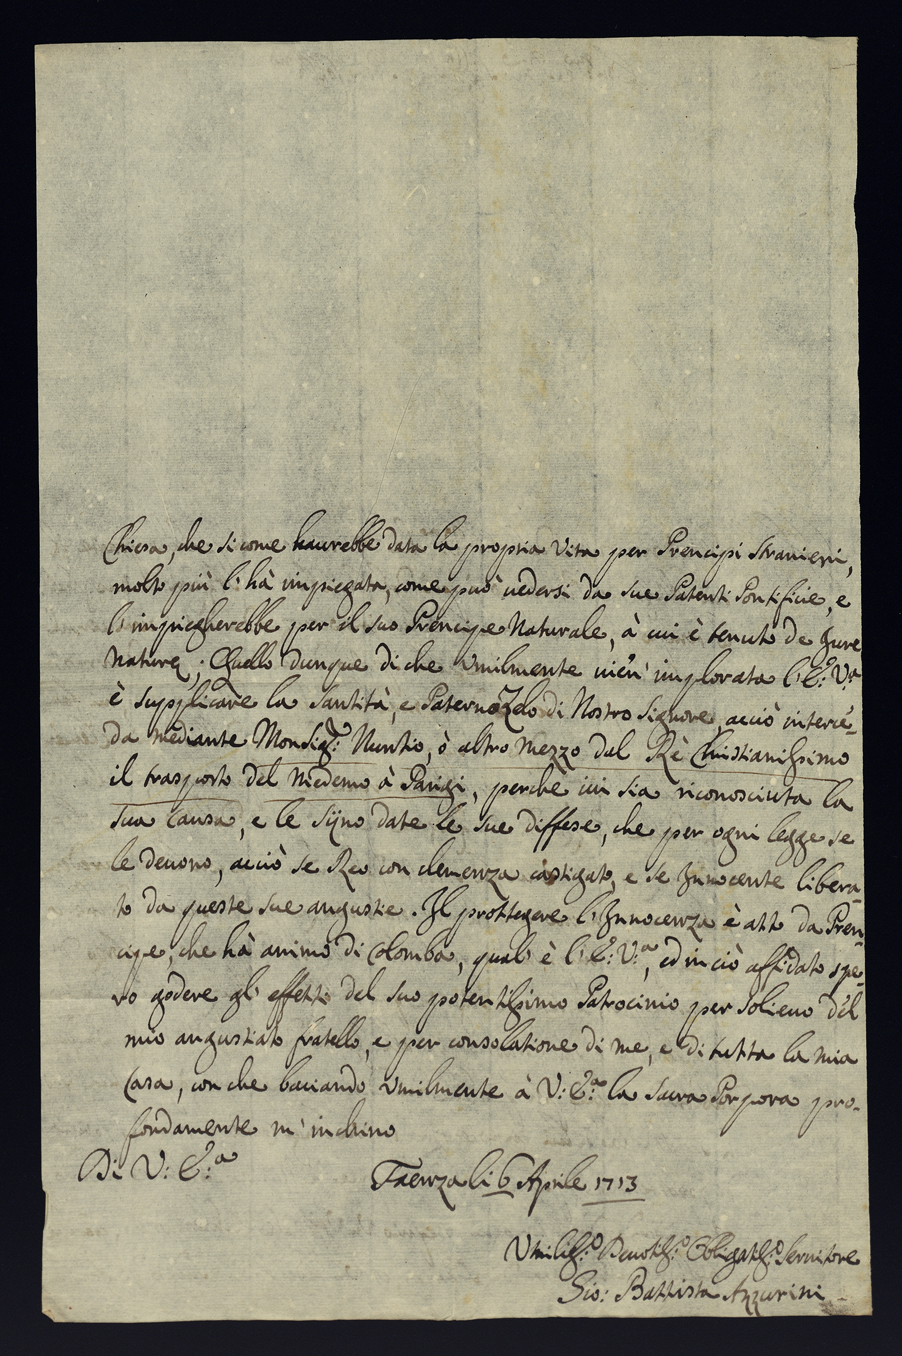 Chiesa, che si come haurebbe data la propria Vita per Prencipi Stranieri,
molto più l'hà impiegata, come può uedersi da sue Patenti Pontificie, e
l'impiegherebbe per il suo Prencipe Naturale, à cui è tenuto de Jure
Naturę. Quello dunque di che Vmilmente uien' implorata l'E: V.ª
è supplicare la Santità, e Paterno Zelo di Nostro Signore, acciò interce-
da mediante Monsig.r: Nuntio, ò altro mezzo dal Rè Christianissimo
il trasporto del Medemo à Parigi, perchè iui sia riconosciuta la
sua causa, e le sijno date le sue diffese, che per ogni legge se
le deuono, acciò se Reo con clemenza castigato, e se Innocente libera-
to da queste sue angustie. Il prottegere l'Innocenza è atto da Pren-
cipe, che hà animo di Colomba, qual'è l'E: V:ª, ed in ciò affidato spe-
ro godere gl'effetti del suo potentissimo Patrocinio per solieuo del
mio angustiato fratello, e per consolatione di me, e di tutta la mia
Casa, con che baciando vmilmente à V: E:ª la Sacra Porpora pro-
fondamente m'inchino
Di V: E:ª
Faenza li 6 Aprile 1713
Vmiliss:º Deuotiss:º Obligatiss:º Seruitore
Gio: Battista Azzurini